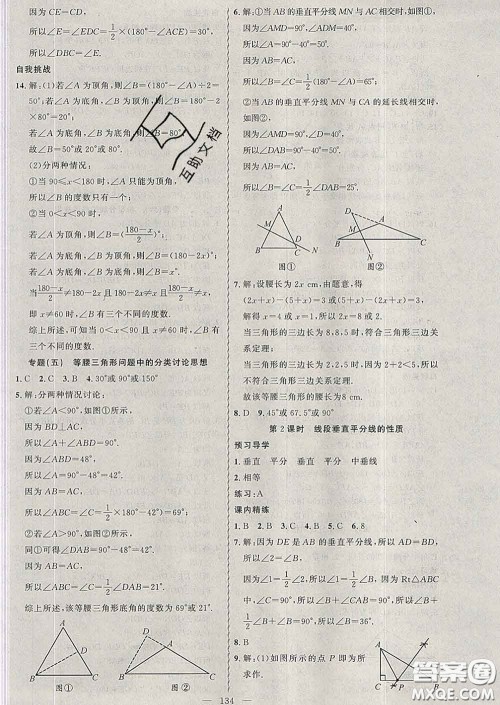 因为 CE=CD,
所以∠DBC=∠CE=1/2×(180°-∠ACE)=30°,
所以∠DBC=∠E.
自我挑战
14.解:(1)若∠A 为顶角,则∠B=(180°-∠A)÷2=
50°;若∠A 为底角,∠B 为顶角,则∠B=180°-2
×80°=20°;
若∠A 为底角,∠B 为底角,则∠B=80°.
故∠B=50°或 20°或 80°.
(2)分两种情况:
①当 90≤x<180 时,∠A 只能为顶角,
所以∠B 的度数只有一个;
②当 0<x<90 时,
若∠A 为顶角,则∠B=(180-x/2)°;
若∠A 为底角,∠B 为顶角,则∠B=(180-2x)°;
若∠A 为底角,∠B 为底角,则∠B=x°.
当180-x/2≠180-2x 且180-x/2≠x 且 180-2x≠x,
即 x≠60 时,∠B 有三个不同的度数.
综上所述,可知当 0<x<90 且 x≠60 时,∠B 有三
个不同的度数.
专题(五) 等腰三角形问题中的分类讨论思想
1. C 2. C 3. B 4. 30°或 90°或 150°
5.解:分两种情况讨论:
①若∠A<90°,如图①所示.
因为 BD⊥AC,
所以∠A+∠ABD=90°.
因为∠ABD=48°,
所以∠A=90°-48°=42°.
因为 AB=AC,
所以∠ABC=∠C=1/2×(180°-42°)=69°;
②若∠A>90°,如图②所示.
同①可得∠DAB=90°-48°=42°.
因为 AB=AC,
所以∠ABC=∠C=1/2∠DAB=21°.
综上所述,该等腰三角形底角的度数为 69°或 21°.
A
D
B
C
图①
D
A
B
C
图②
6.解:①当 AB 的垂直平分线 MN 与 AC 相交时,如图①,
因为∠A=90°-40°=50°,
因为 AB=AC,
所以∠B=∠C=1/2×(180°-∠A)=65°;
②当 AB 的垂直平分线 MN 与 CA 的延长线相交时,
如图②,
所以∠DAB=90°-40°=50°.
因为 AB=AC,
所以∠B=∠C=1/2∠DAB=25°.
A
M
D
N
B
C
图①
D
M
A
B
N
C
图②
7.解:设腰长为 2x cm,由题意,得
(2x+x)-(5+x)=3 或(5+x)-(2x+x)=3,
解得 x=4 或 x=1,所以 2x=8 或 2.
当三角形的三边长为 8,8,5 时,符合三角形三边
关系定理;
当三角形的三边长为 2,2,5 时,因为 2+2<5,所以
不符合三角形三边关系定理.
故该等腰三角形的腰长为 8 cm.
8. D 9. 45°或 67.5°或 90°
第 2 课时 线段垂直平分线的性质
预习导学
1. 垂直 平分 垂直 平分 中垂线
2. 相等
练习:A
课内精练
1. B 2. B 3. B 4. C 5. C 6. 8
7.解:因为 DE 是 AB 的垂直平分线,所以 AD=BD,
所以∠2=∠B.
因为∠1=1/2∠2,所以∠1=1/2∠B.因为 Rt△ABC
中,∠C=90°,所以∠1+∠2+∠B=90°,即1/2∠B+
∠B+∠B=90°,所以∠B=36°.
8. B
9.解:(1)如图所示的点 P 即为所
求作.
A
C
P
B
134
互助文档
答案圈
MXQE.COM